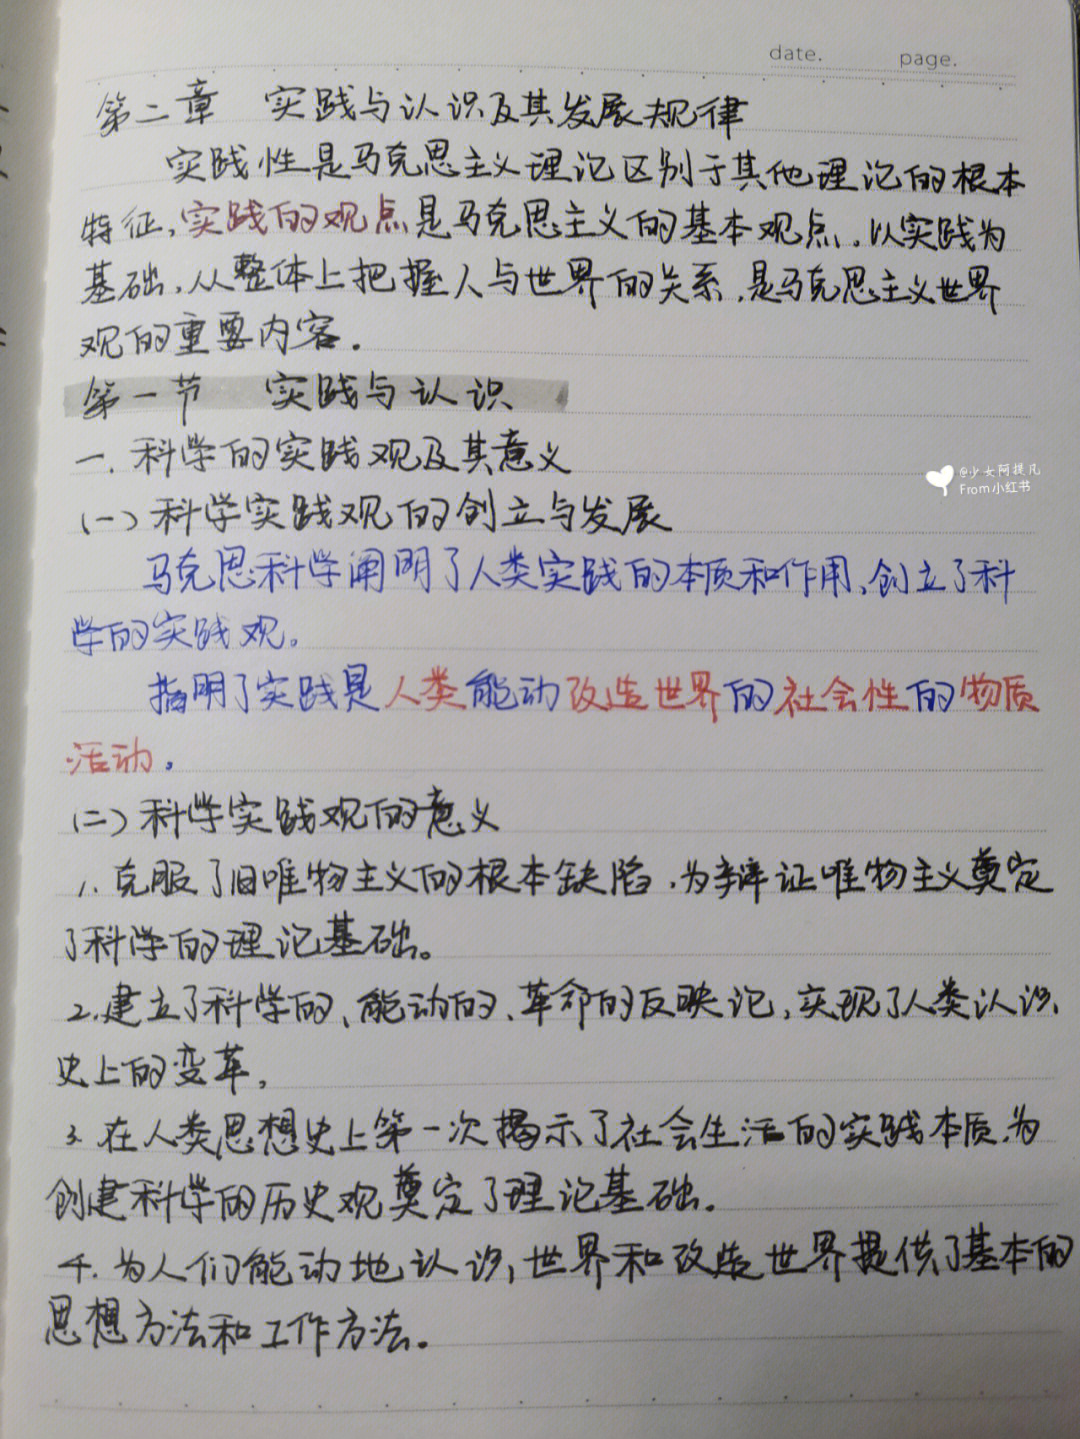 date. page.
第二章 实践与认识及其发展规律
实践性是马克思主义理论区别于其他理论的根本
特征,实践的观点是马克思主义的基本观点。以实践为
基础,从整体上把握人与世界的关系,是马克思主义世界
观的重要内容.
第一节 实践与认识
一.科学的实践观及其意义
(一)科学实践观的创立与发展
@少女阿提凡
From小红书
马克思科学阐明了人类实践的本质和作用,创立了科
学的实践观。
指明了实践是人类能动改造世界的社会性的物质
活动。
(二)科学实践观的意义
1.克服了旧唯物主义的根本缺陷,为辩证唯物主义奠定
了科学的理论基础。
2.建立了科学的、能动的、革命的反映论,实现了人类认识
史上的变革。
3.在人类思想史上第一次揭示了社会生活的实践本质,为
创建科学的历史观奠定了理论基础。
4.为人们能动地认识,世界和改造世界提供了基本的
思想方法和工作方法。